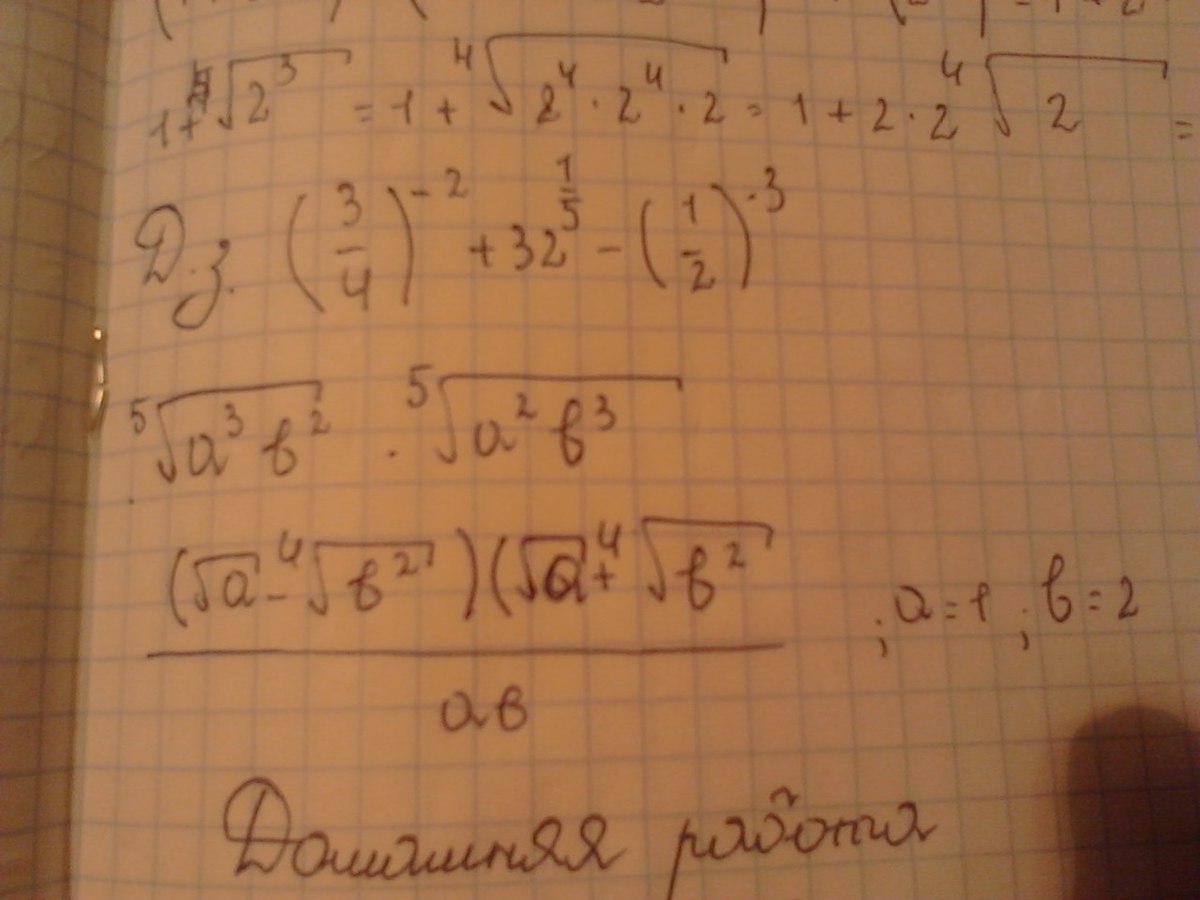 1+√2³ = 1 + ⁴√2⁴·2⁴·2 = 1 + 2·2 ⁴√2 =
Д.з. (3/4)⁻² + 32^(1/5) − (1/2)⁻³
⁵√a³b² · ⁵√a²b³
(√a − ⁴√b²)(√a + ⁴√b² ; a=1 ; b=2
ab
Домашняя работа